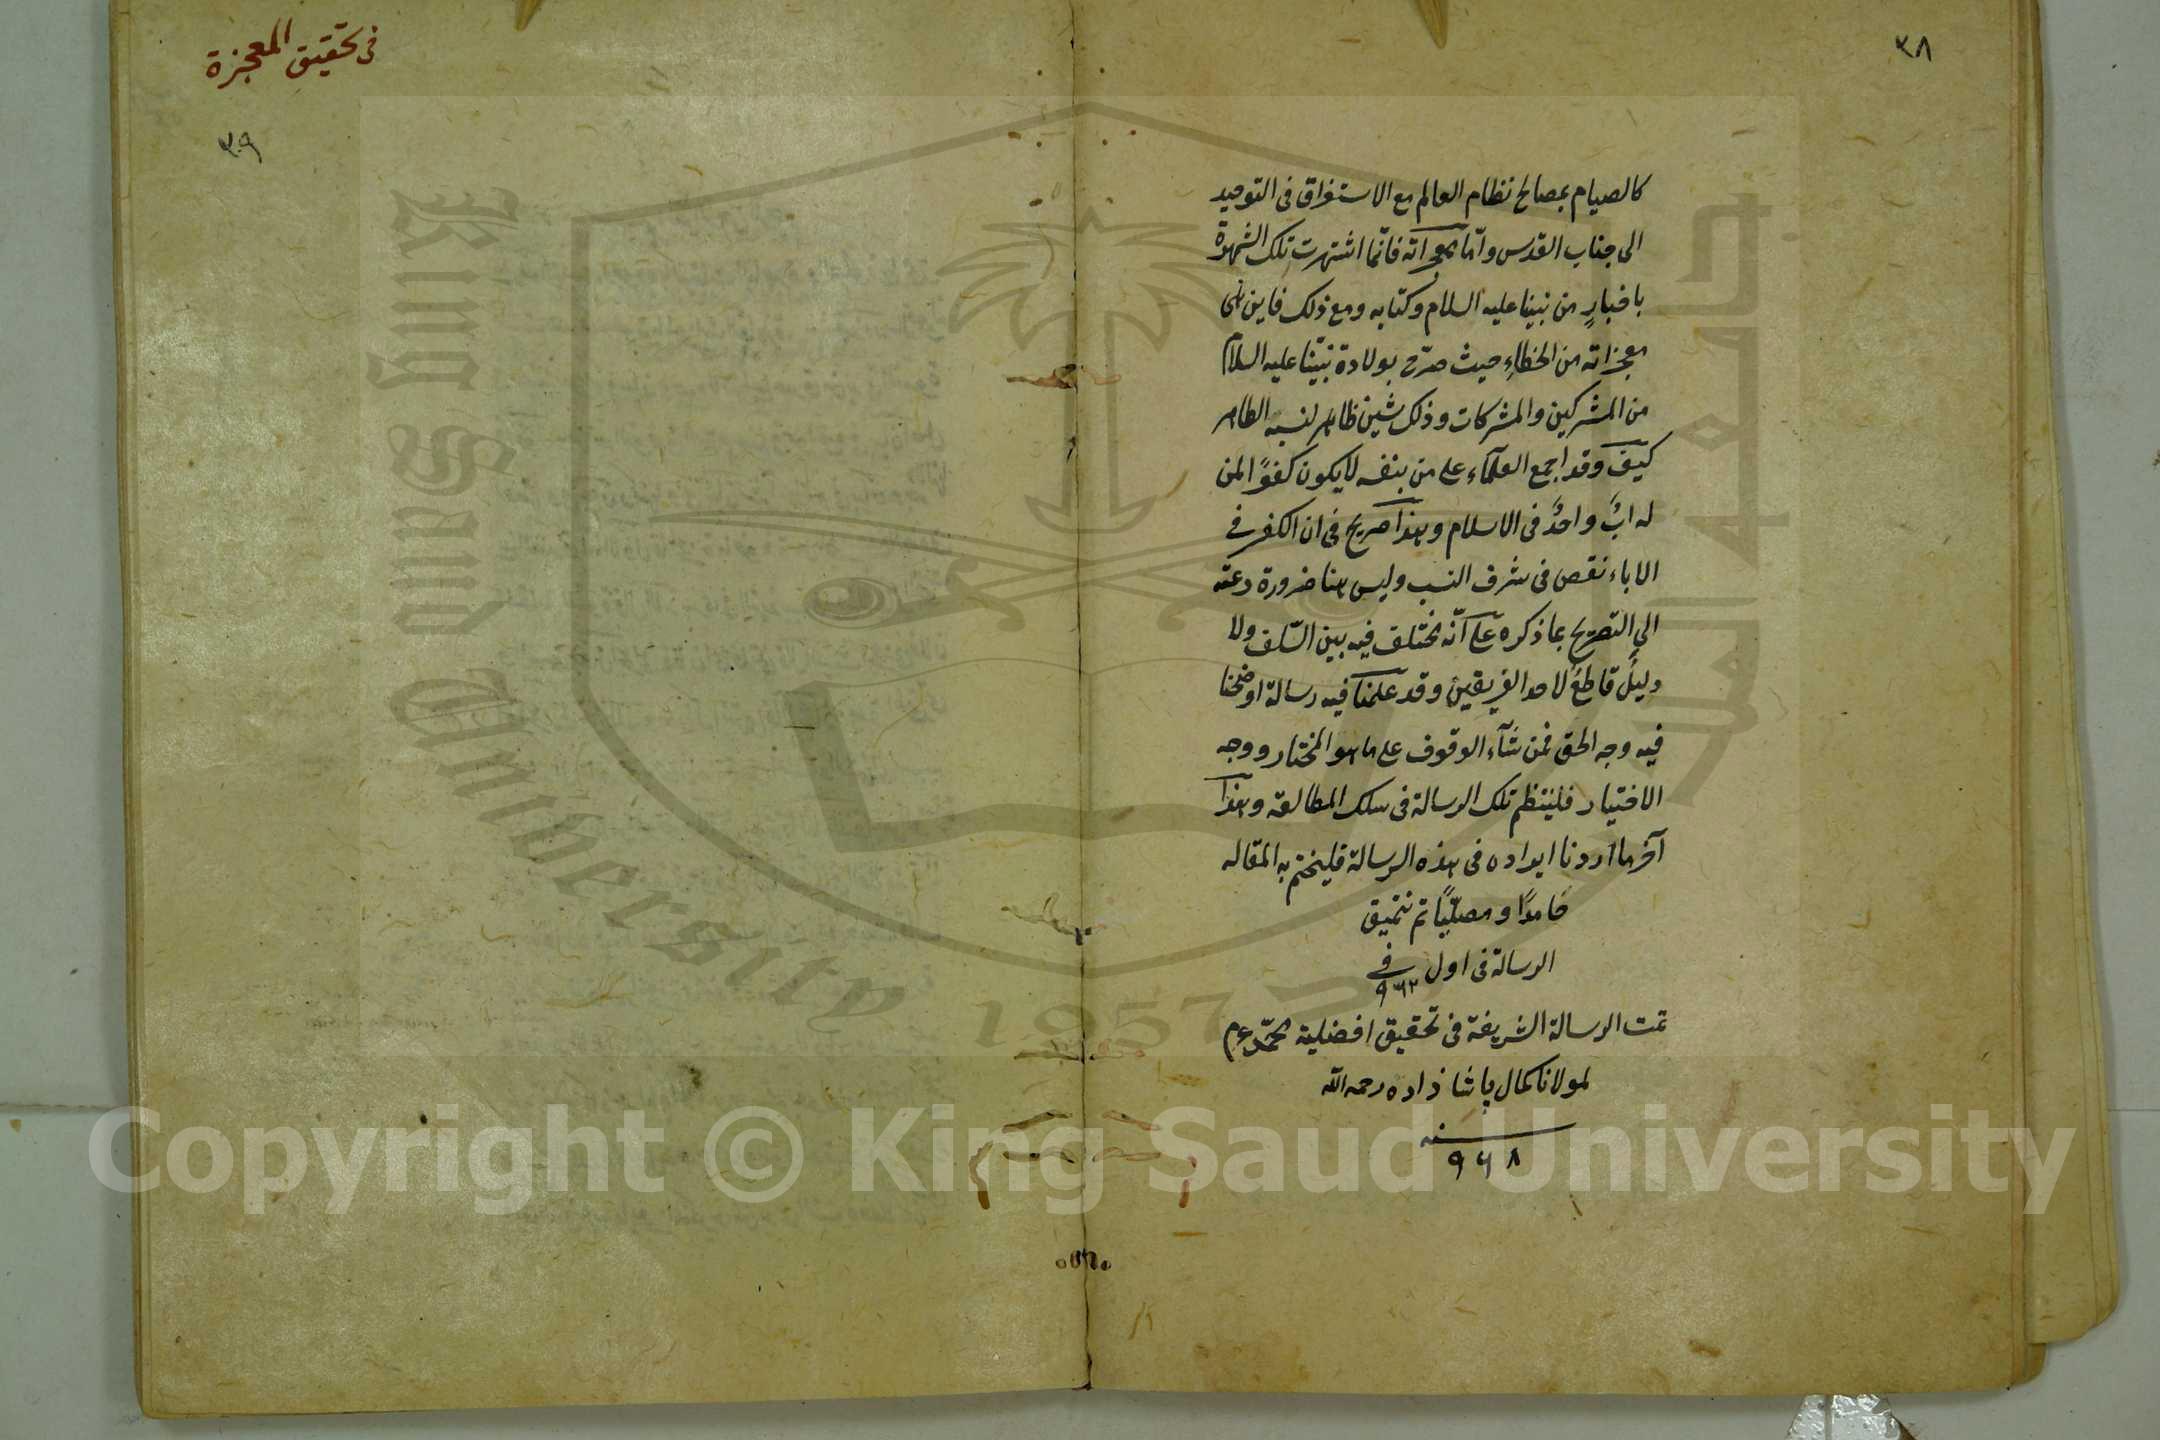 ٣٨
كالصيام بمصالح نظام العالم مع الاستغراق فى التوحيد
الى جناب القدس وامّا معجزاته فانّما اشتهرت تلك الشهرة
باخبارٍ من نبينا عليه السلام وكتابه ومع ذلك فاين
معجزاته من الخطاءِ حيث صرّح بولادة نبيّنا عليه السلام
من المشركين والمشركات وذلك شين ظاهر لنسبه الطاهر
كيف وقد اجمع العلمآء على من بنفسه لا يكون كفوًا لمن
له ابٌ واحدٌ فى الاسلام وهذا صريح فى ان الكفر فى
الاباء نقص فى شرف النسب وليس هنا ضرورة دعته
الى التصريح بما ذكره على انّه مختلف فيه بين السّلف ولا
دليلٌ قاطعٌ لاحد الفريقين وقد علمنا فيه رسالة اوضحنا
فيه وجه الحق فمن شآء الوقوف على ما هو المختار ووجه
الاختيار فلينتظم تلك الرسالة فى سلك المطالعة وهذا
آخر ما اردنا ايراده فى هذه الرسالة فليختم به المقاله
حامدًا ومصلّيًا تم تنميق
الرسالة فى اول
٩٦٢
تمت الرسالة الشريفة فى تحقيق افضلية محمّد عم
لمولانا كمال پاشا زاده رحمه الله
سنه
٩٦٨
فى تحقيق المعجزة
٣٩
King Saud University
1957
Copyright © King Saud University